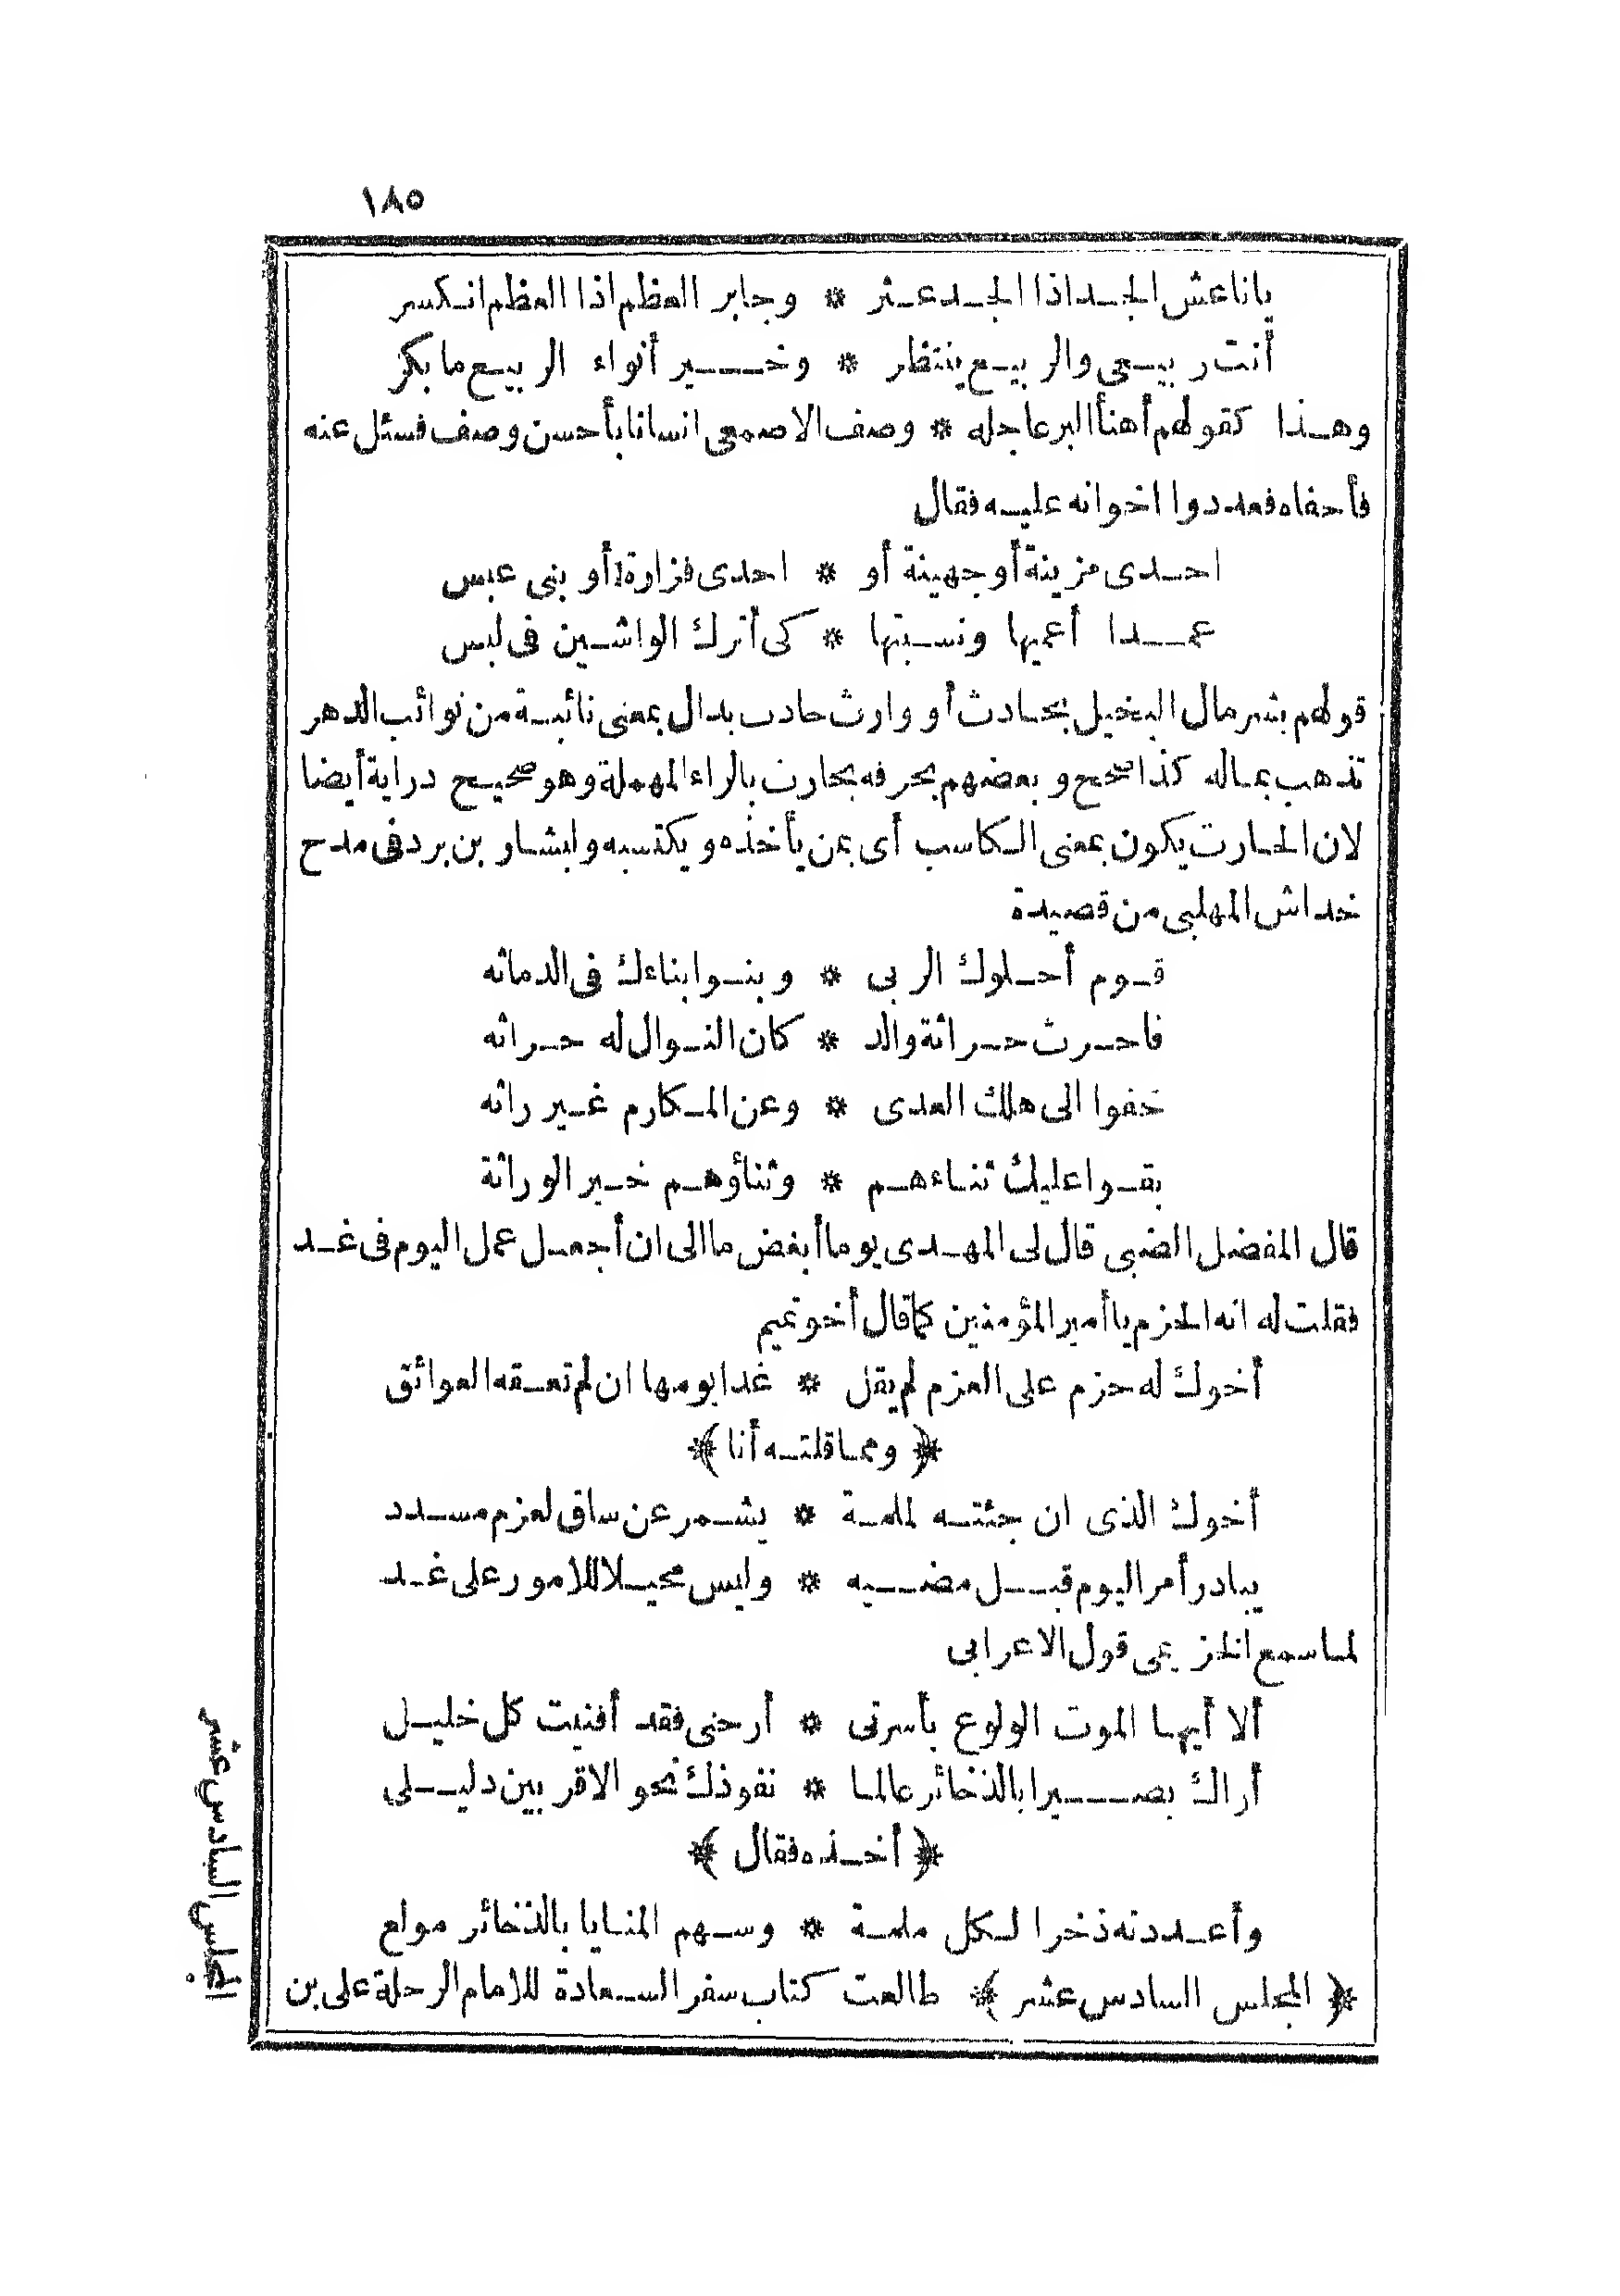 ١٨٥
ياناعش الجد اذا الجد عثر * وجابر العظم اذا العظم انكسر
أنت ربيعى والربيع ينتظر * وخير أنواء الربيع ما بكر
وهذا كقولهم أهنأ البر عاجله * وصف الاصمعى انسانا بأحسن وصف فسئل عنه
فأحفاه فعددوا اخوانه عليه فقال
احدى مزينة أو جهينة أو * احدى فزارة أو بنى عبس
عمدا أعميها ونسبتها * كى أترك الواشين فى لبس
قولهم بشر مال البخيل بحادث أو وارث حادث بدال بمعنى نائبة من نوائب الدهر
تذهب بماله كذا صحح وبعضهم يحرفه بحارث بالراء المهملة وهو صحيح دراية أيضا
لان الحارث يكون بمعنى الكاسب أى بمن يأخذه ويكتسبه ولبشار بن برد فى مدح
خداش المهلبى من قصيدة
قوم أحلوك الربى * وبنوا بناءك فى الدماثه
فاحرث حراثة والد * كان النوال له حراثه
خفوا الى هلك العدى * وعن المكارم غير راثه
بقوا عليك ثناءهم * وثناؤهم خير الوراثة
قال المفضل الضبى قال لى المهدى يوما أبغض ما الى ان أجعل عمل اليوم فى غد
فقلت له انه الحزم يا أمير المؤمنين كما قال أخو تميم
أخوك له حزم على العزم لم يقل * غدا يومها ان لم تعقه العوائق
﴿ ومما قلته أنا ﴾
أخوك الذى ان جئته لملمة * يشمر عن ساق لعزم مسدد
يبادر أمر اليوم قبل مضيه * وليس محيلا للامور على غد
لما سمع الخزيمى قول الاعرابى
ألا أيها الموت الولوع بأسرتى * أرحنى فقد أفنيت كل خليل
أراك بصيرا بالذخائر عالما * نفوذك نحو الاقربين دليلى
﴿ أخذه فقال ﴾
وأعددته ذخرا لكل ملمة * وسهم المنايا بالذخائر مولع
﴿ المجلس السادس عشر ﴾ طالعت كتاب سفر السعادة للامام الرحلة على بن
المجلس السادس عشر